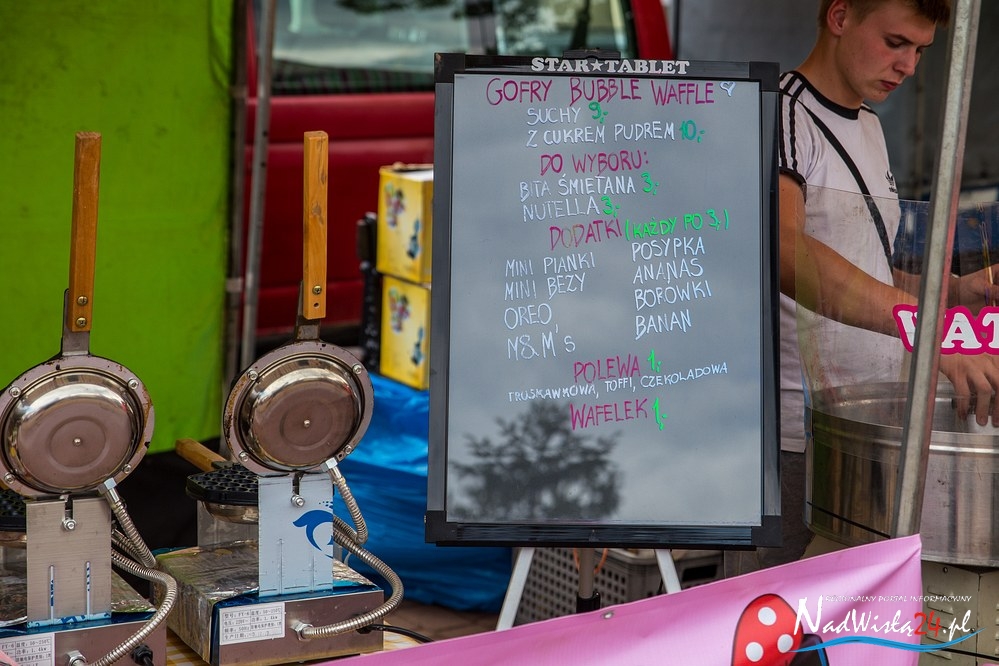 STAR★TABLET
GOFRY BUBBLE WAFFLE ♡
SUCHY 9,-
Z CUKREM PUDREM 10,-
DO WYBORU:
BITA ŚMIETANA 3,-
NUTELLA 3,-
DODATKI (KAŻDY PO 3,-)
MINI PIANKI
MINI BEZY
OREO
M&M,s
POSYPKA
ANANAS
BORÓWKI
BANAN
POLEWA 1,-
TRUSKAWKOWA, TOFFI, CZEKOLADOWA
WAFELEK 1,-
WAT
adidas
REGIONALNY PORTAL INFORMACYJNY
NadWisłą24.pl